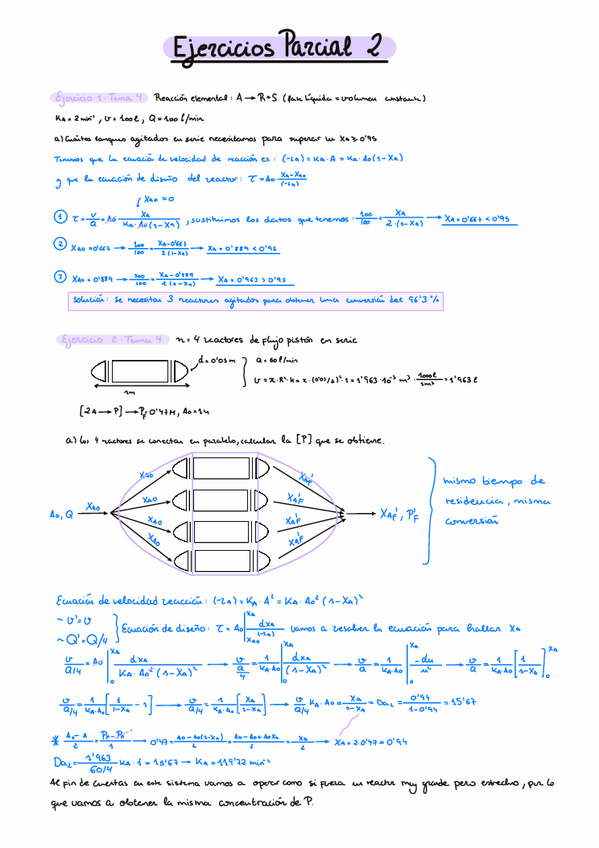 Ejercicios Parcial 2
Ejercicio 1: Tema 4 Reacción elemental: A → R+S (fase líquida = volumen constante)
KA = 2 min⁻¹, v = 100 l, Q = 100 l/min
a) Cuántos tanques agitados en serie necesitamos para superar un XA ≥ 0'95
Tenemos que la ecuación de velocidad de reacción es: (-rA) = KA·A = KA·A0(1-XA)
y que la ecuación de diseño del reactor: τ = A0·(XA-XA0)/(-rA)
XA0 = 0
① τ = v/Q = A0·XA/(KA·A0(1-XA)), sustituimos los datos que tenemos: 100/100 = XA/(2·(1-XA)) → XA = 0'667 < 0'95
② XA0 = 0'667 → 100/100 = (XA-0'667)/(2(1-XA)) → XA = 0'889 < 0'95
③ XA0 = 0'889 → 100/100 = (XA-0'889)/(2(1-XA)) → XA = 0'963 > 0'95
Solución: Se necesitan 3 reactores agitados para obtener una conversión del 96'3%
Ejercicio 2: Tema 4 n = 4 reactores de flujo pistón en serie
d = 0'05 m
Q = 60 l/min
v = π·R²·h = π·(0'05/2)²·1 = 1'963·10⁻³ m³·1000l/1m³ = 1'963 l
1m
[2A → P] → PF 0'47M, A0 = 1M
a) Los 4 reactores se conectan en paralelo, calcular la [P] que se obtiene.
A0, Q XA0
XA0 XAF'
XA0 XAF'
XA0 XAF'
XA0 XAF'
XAF', PF'
mismo tiempo de
residencia, misma
conversión
Ecuación de velocidad reacción: (-rA) = KA·A² = KA·A0²(1-XA)²
~ v' = v
~ Q' = Q/4
Ecuación de diseño: τ = A0 ∫XA0^XA dXA/(-rA) vamos a resolver la ecuación para hallar XA
v/(Q/4) = A0 ∫0^XA dXA/(KA·A0²(1-XA)²) → v/(Q/4) = 1/(KA·A0) ∫0^XA dXA/(1-XA)² → v/(Q/4) = 1/(KA·A0) ∫0^XA -du/u² → v/(Q/4) = 1/(KA·A0) [1/(1-XA)]0^XA
v/(Q/4) = 1/(KA·A0) [1/(1-XA) - 1] → v/(Q/4) = 1/(KA·A0) [XA/(1-XA)] → v/(Q/4) KA·A0 = XA/(1-XA) = Da2 = 0'94/(1-0'94) = 15'67
* (A0-A)/2 = (PF-P0)/1 → 0'47 = (A0-A0(1-XA))/2 = (A0-A0+A0XA)/2 = XA/2 → XA = 2·0'47 = 0'94
Da2 = 1'963/(60/4) KA·1 = 15'67 → KA = 119'72 min⁻¹
Al fin de cuentas en este sistema vamos a operar como si fuera un reactor muy grande pero estrecho, por lo
que vamos a obtener la misma concentración de P.